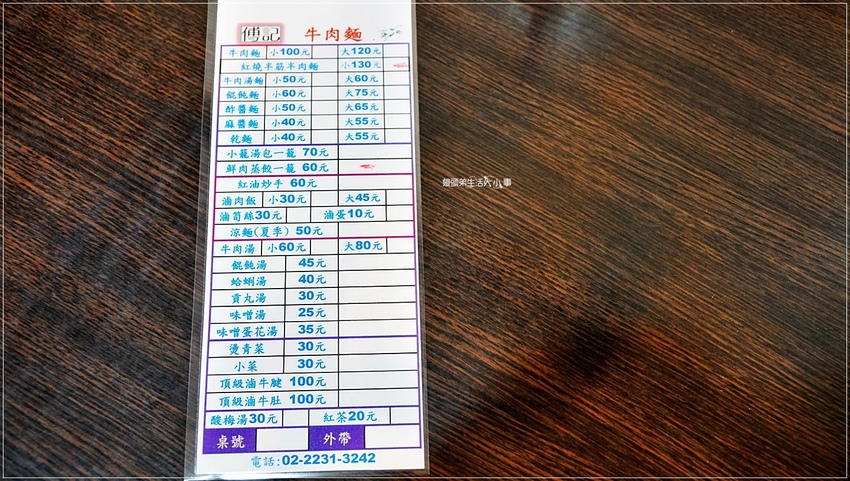 傅記 牛肉麵
牛肉麵 小100元 大120元
紅燒半筋半肉麵 小130元
牛肉湯麵 小50元 大60元
餛飩麵 小60元 大75元
酢醬麵 小50元 大65元
麻醬麵 小40元 大55元
乾麵 小40元 大55元
小籠湯包一籠 70元
鮮肉蒸餃一籠 60元
紅油炒手 60元
滷肉飯 小30元 大45元
滷筍絲30元 滷蛋10元
涼麵(夏季) 50元
牛肉湯 小60元 大80元
餛飩湯 45元
蛤蜊湯 40元
貢丸湯 30元
味噌湯 25元
味噌蛋花湯 35元
燙青菜 30元
小菜 30元
頂級滷牛腱 100元
頂級滷牛肚 100元
酸梅湯30元 紅茶20元
桌號 外帶
電話:02-2231-3242
饅頭弟生活大小事